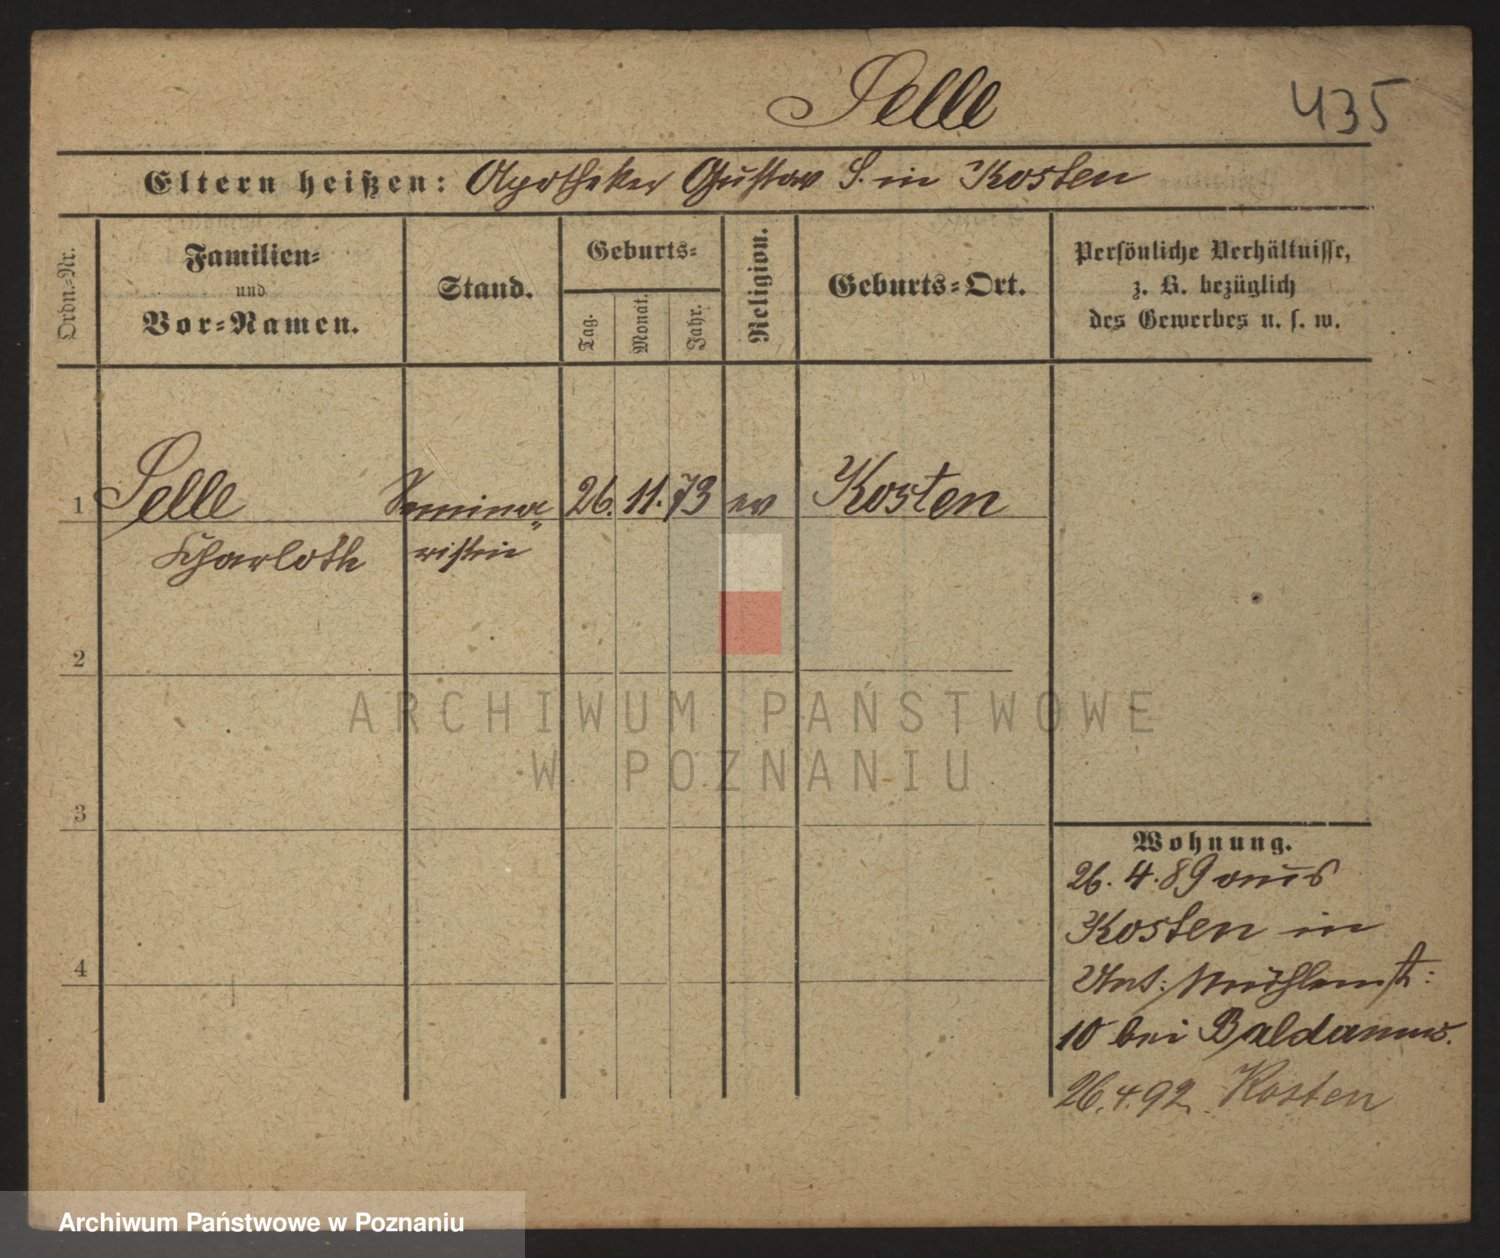 Selle
435
Eltern heißen: Apotheker Gustav S. in Kosten
Ordn.-Nr.
Familien-
und
Vor-Namen.
Stand.
Geburts-
Tag.
Monat.
Jahr.
Religion.
Geburts-Ort.
Persönliche Verhältnisse,
z. B. bezüglich
des Gewerbes u. s. w.
1 Selle Semina- 26. 11. 73 ev Kosten
Charloth ristin
2
3
4
Wohnung.
26. 4. 89 aus
Kosten in
Unt: Mühlenstr:
10 bei Baldamus.
26.4.92. Kosten
ARCHIWUM PAŃSTWOWE
W POZNANIU
Archiwum Państwowe w Poznaniu